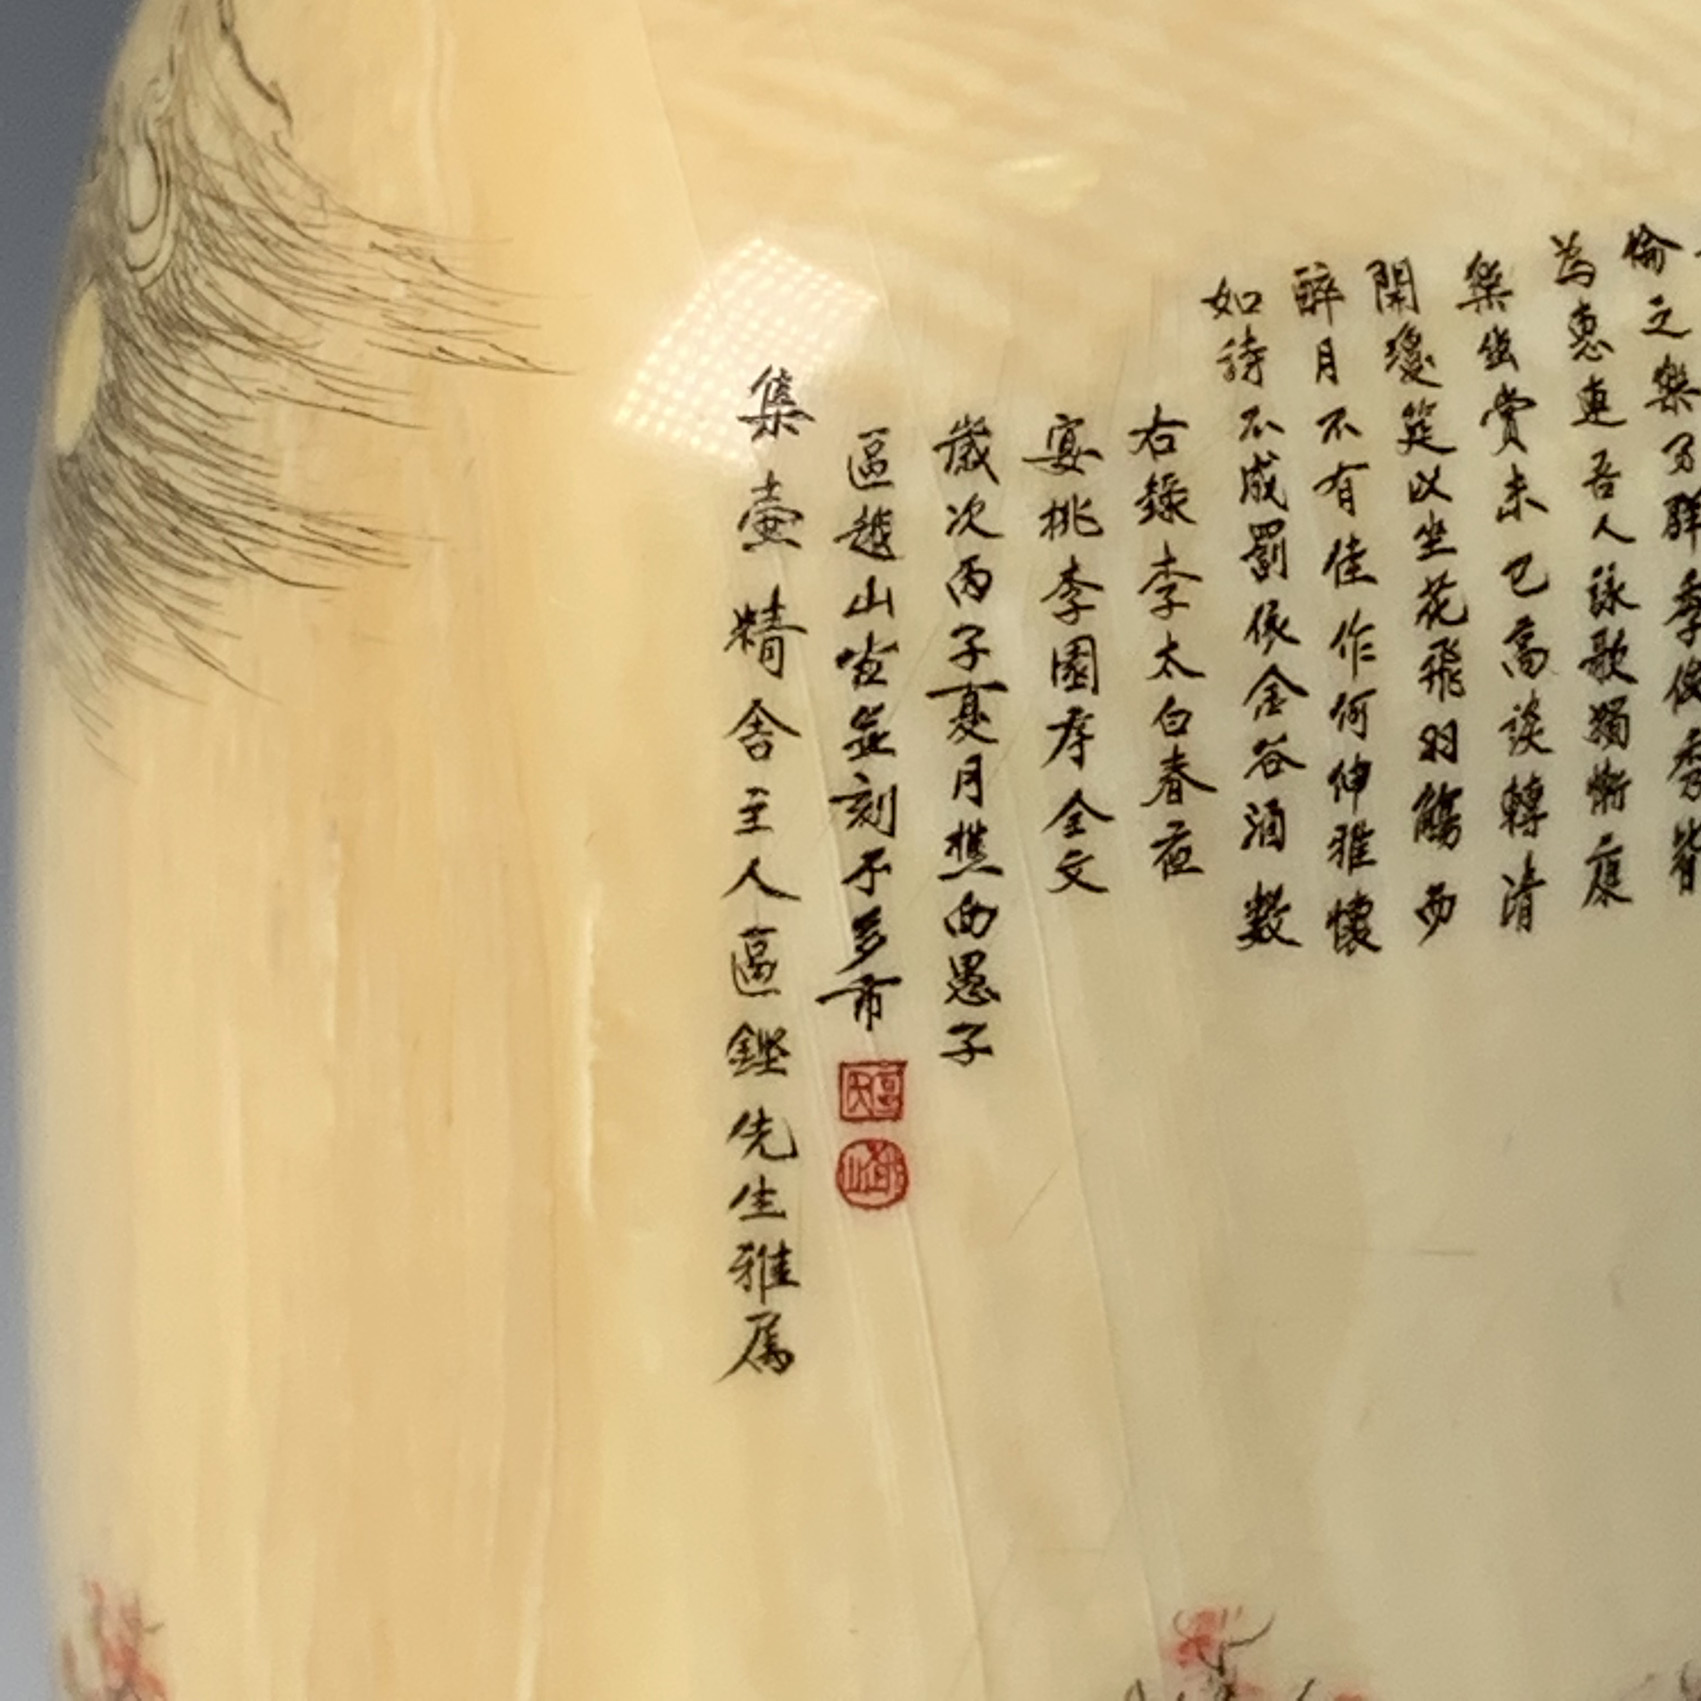 倫之樂事群季俊秀皆
為惠連吾人詠歌獨慚康
樂幽賞未已高談轉清
開瓊筵以坐花飛羽觴而
醉月不有佳作何伸雅懷
如詩不成罰依金谷酒數
右錄李太白春夜
宴桃李園序全文
歲次丙子夏月樵西愚子
區越山書並刻于多市
區氏
越山
集壺精舍主人區鏗先生雅屬